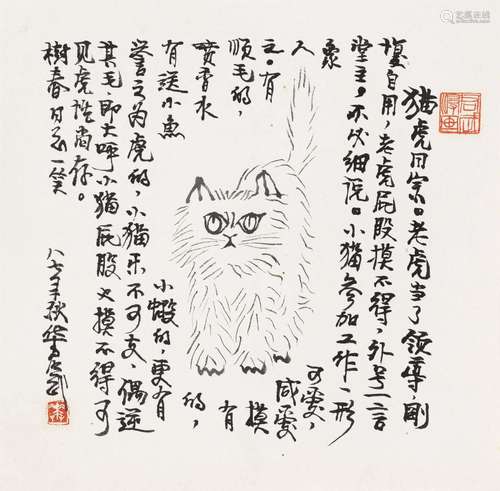 猫虎同宗。老虎当了领導,刚
愎自用,老虎屁股摸不得,外号一言
堂主,不必细说。小猫参加工作一形
象 可愛,
人 咸愛
之。有 摸
顺毛的, 有
喷香水 的,
有送小魚 小蝦的,更有
誉之为虎的,小猫乐不可支,偶逆
其毛,即大呼小猫屁股也摸不得,可
见虎性尚存。
樹春同志一笑
八七年秋 华君武